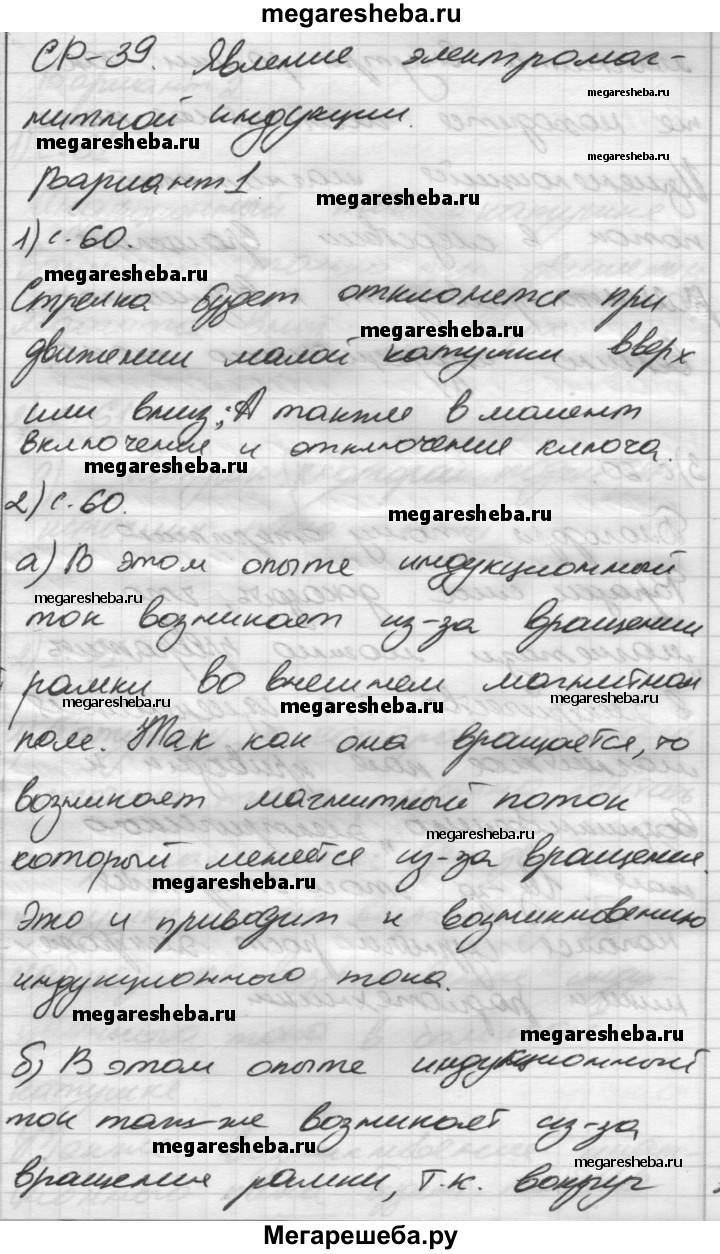 megaresheba.ru
СР-39. Явление электромаг-
megaresheba.ru
нитной индукции.
megaresheba.ru
megaresheba.ru
Вариант 1
megaresheba.ru
1) с. 60.
megaresheba.ru
Стрелка будет отклонется при
megaresheba.ru
движении малой катушки вверх
или вниз; А также в момент
включения и отключение ключа.
megaresheba.ru
2) с. 60.
megaresheba.ru
а) В этом опыте индукционный
megaresheba.ru
megaresheba.ru
ток возникает из-за вращении
рамки во внешнем магнитном
megaresheba.ru
megaresheba.ru
megaresheba.ru
поле. Так как она вращается, то
возникает магнитный поток
megaresheba.ru
который меняется из-за вращение.
megaresheba.ru
Это и приводит к возникновению
индукционного тока.
megaresheba.ru
megaresheba.ru
б) В этом опыте индукционный
ток так-же возникает из-за
megaresheba.ru
megaresheba.ru
вращение рамки, т.к. вокруг
Мегарешеба.ру